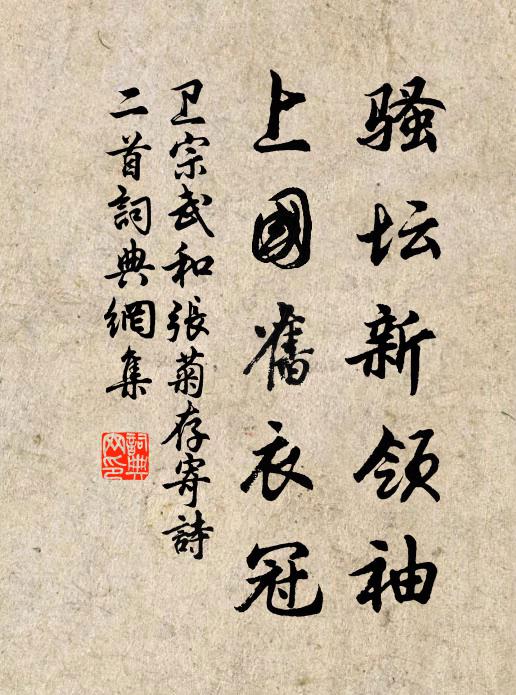 骚坛新领袖
上國舊衣冠
卫宗武和張菊存寄詩
二首詞典網集
詞典网印